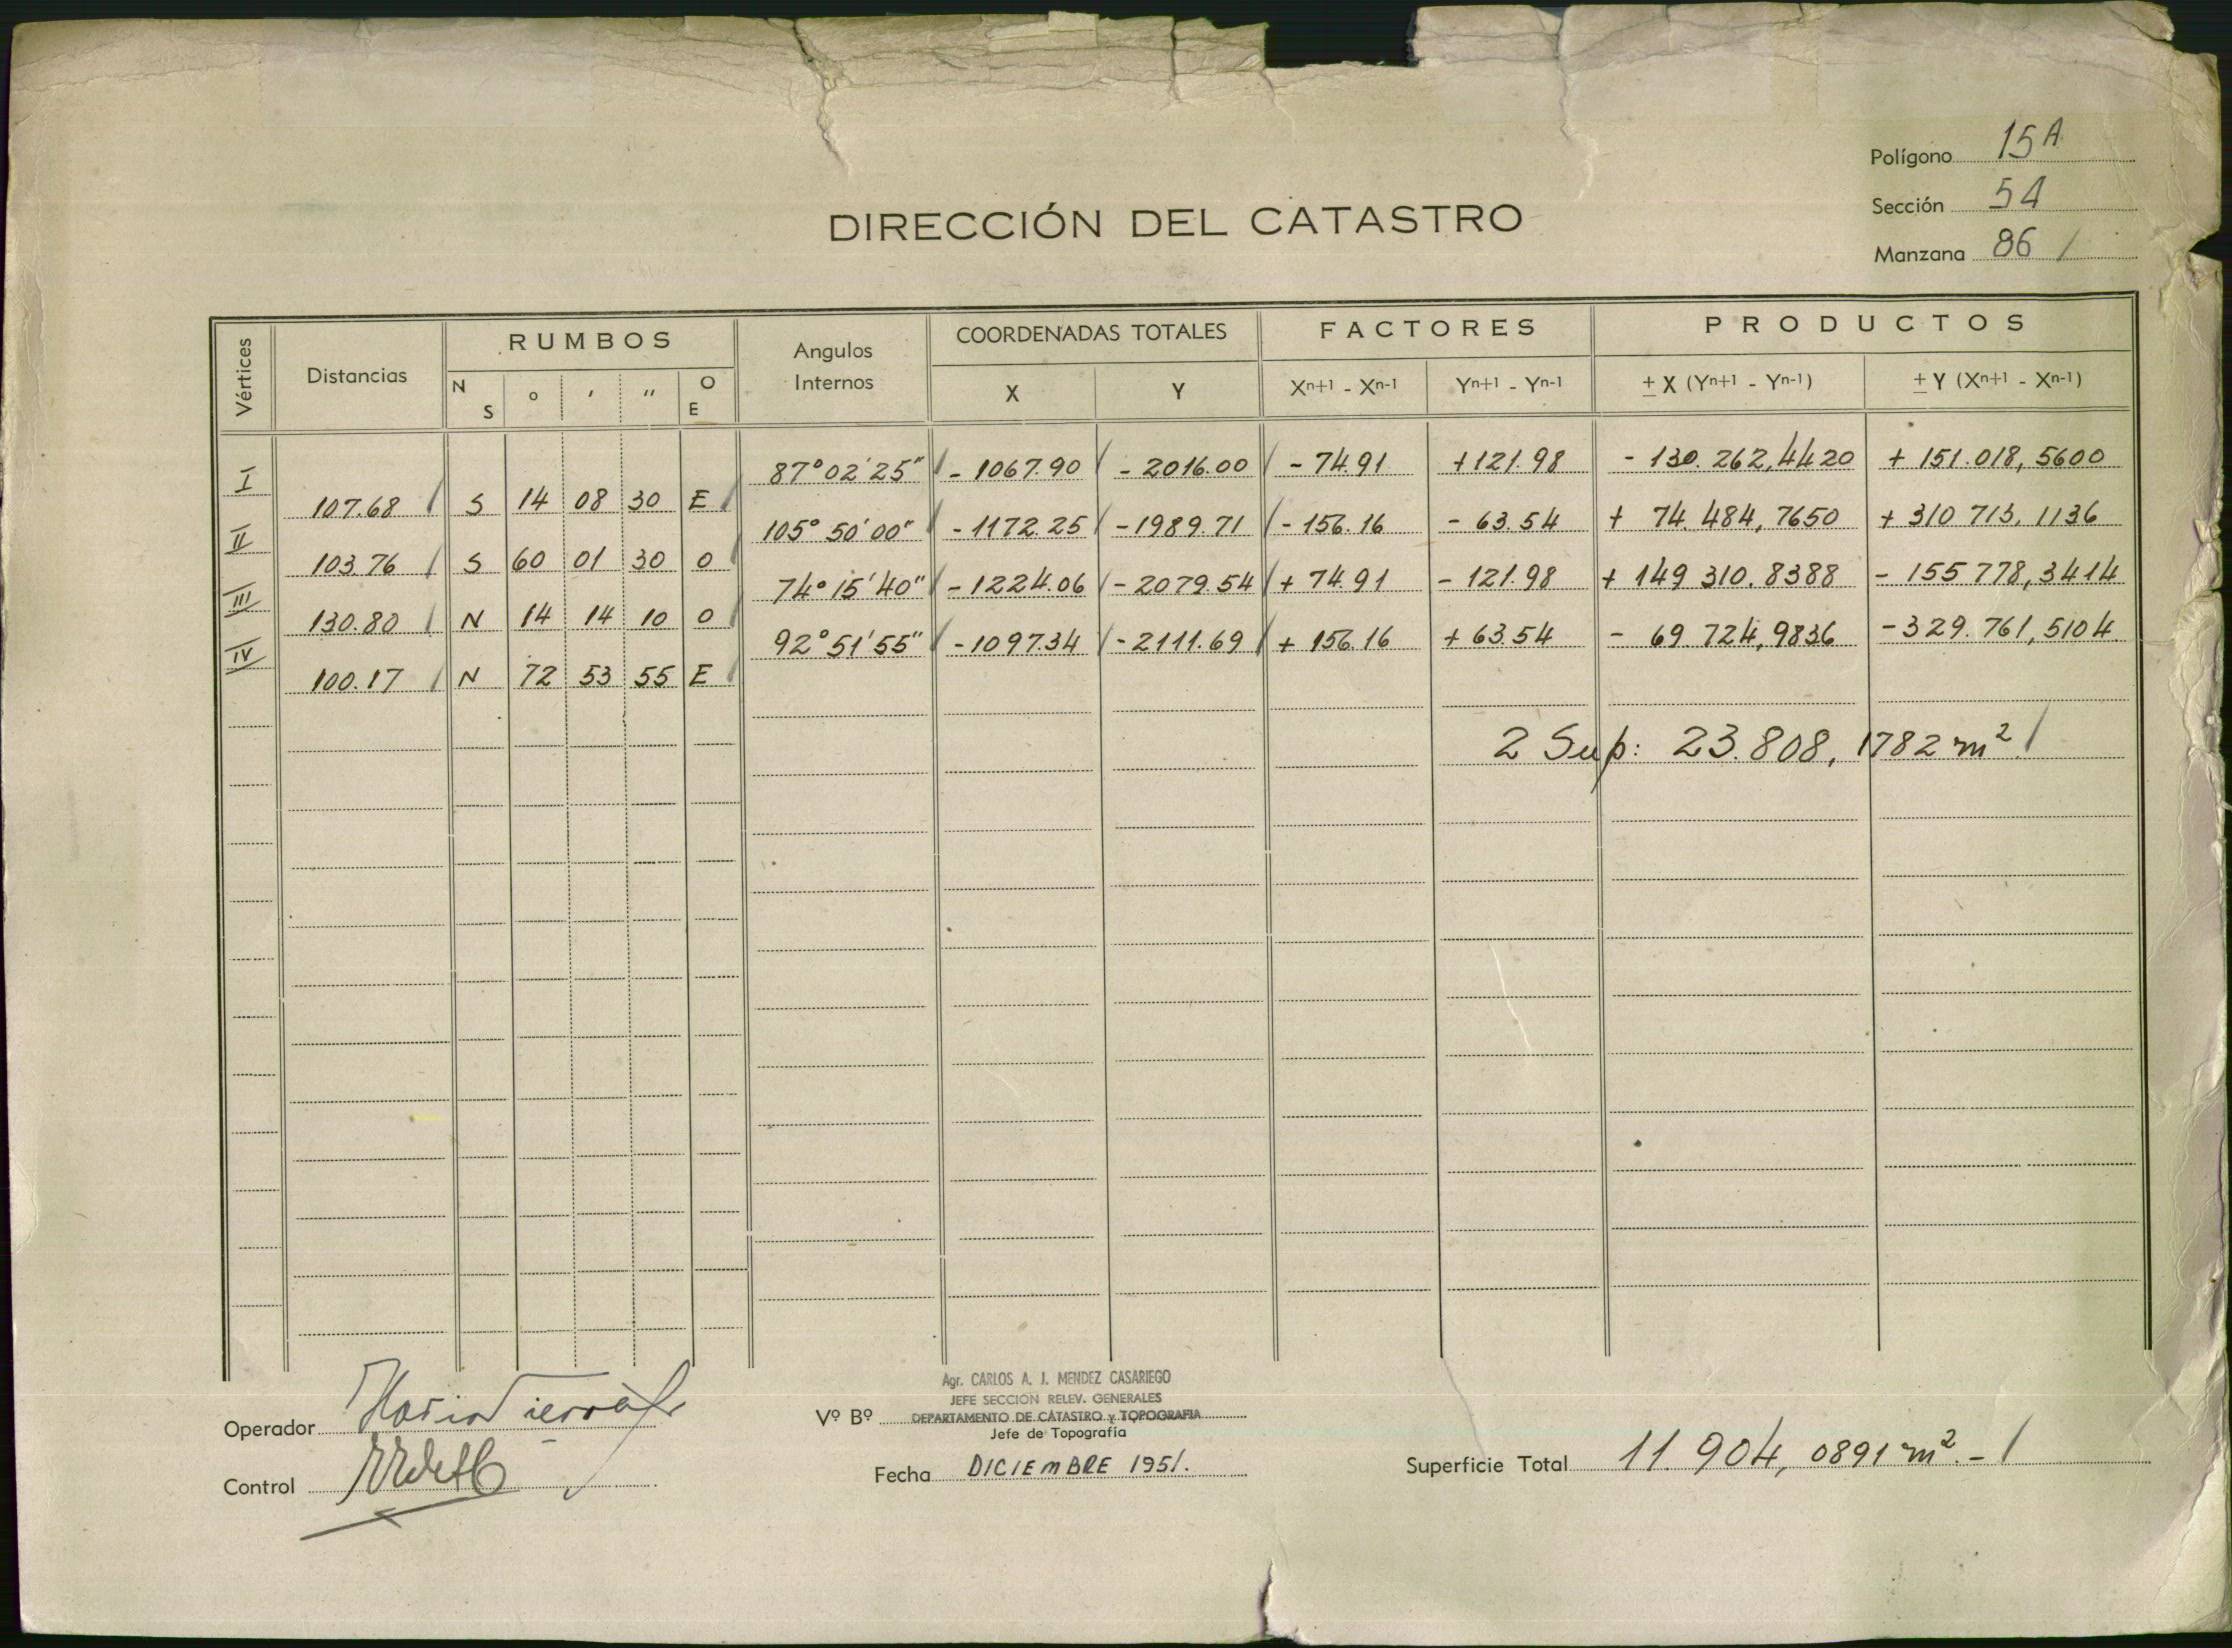 Polígono 15A
Sección 54
Manzana 86 /
DIRECCIÓN DEL CATASTRO
Vértices Distancias RUMBOS Angulos Internos COORDENADAS TOTALES FACTORES PRODUCTOS
N S ° ' " O E X Y Xn+1 - Xn-1 Yn+1 - Yn-1 ± X (Yn+1 - Yn-1) ± Y (Xn+1 - Xn-1)
I 87° 02' 25" - 1067.90 - 2016.00 - 74.91 + 121.98 - 130.262,4420 + 151.018,5600
107.68 S 14 08 30 E
II 105° 50' 00" - 1172.25 - 1989.71 - 156.16 - 63.54 + 74.484,7650 + 310 713,1136
103.76 S 60 01 30 O
III 74° 15' 40" - 1224.06 - 2079.54 + 74.91 - 121.98 + 149 310.8388 - 155 778,3414
130.80 N 14 14 10 O
IV 92° 51' 55" - 1097.34 - 2111.69 + 156.16 + 63.54 - 69.724,9836 - 329.761,5104
100.17 N 72 53 55 E
2 Sup: 23.808,1782 m² /
Agr. CARLOS A. J. MENDEZ CASARIEGO
JEFE SECCION RELEV. GENERALES
Operador Vº Bº DEPARTAMENTO DE CATASTRO y TOPOGRAFIA
Jefe de Topografía
Control Fecha DICIEMBRE 1951. Superficie Total 11.904,0891 m².- /